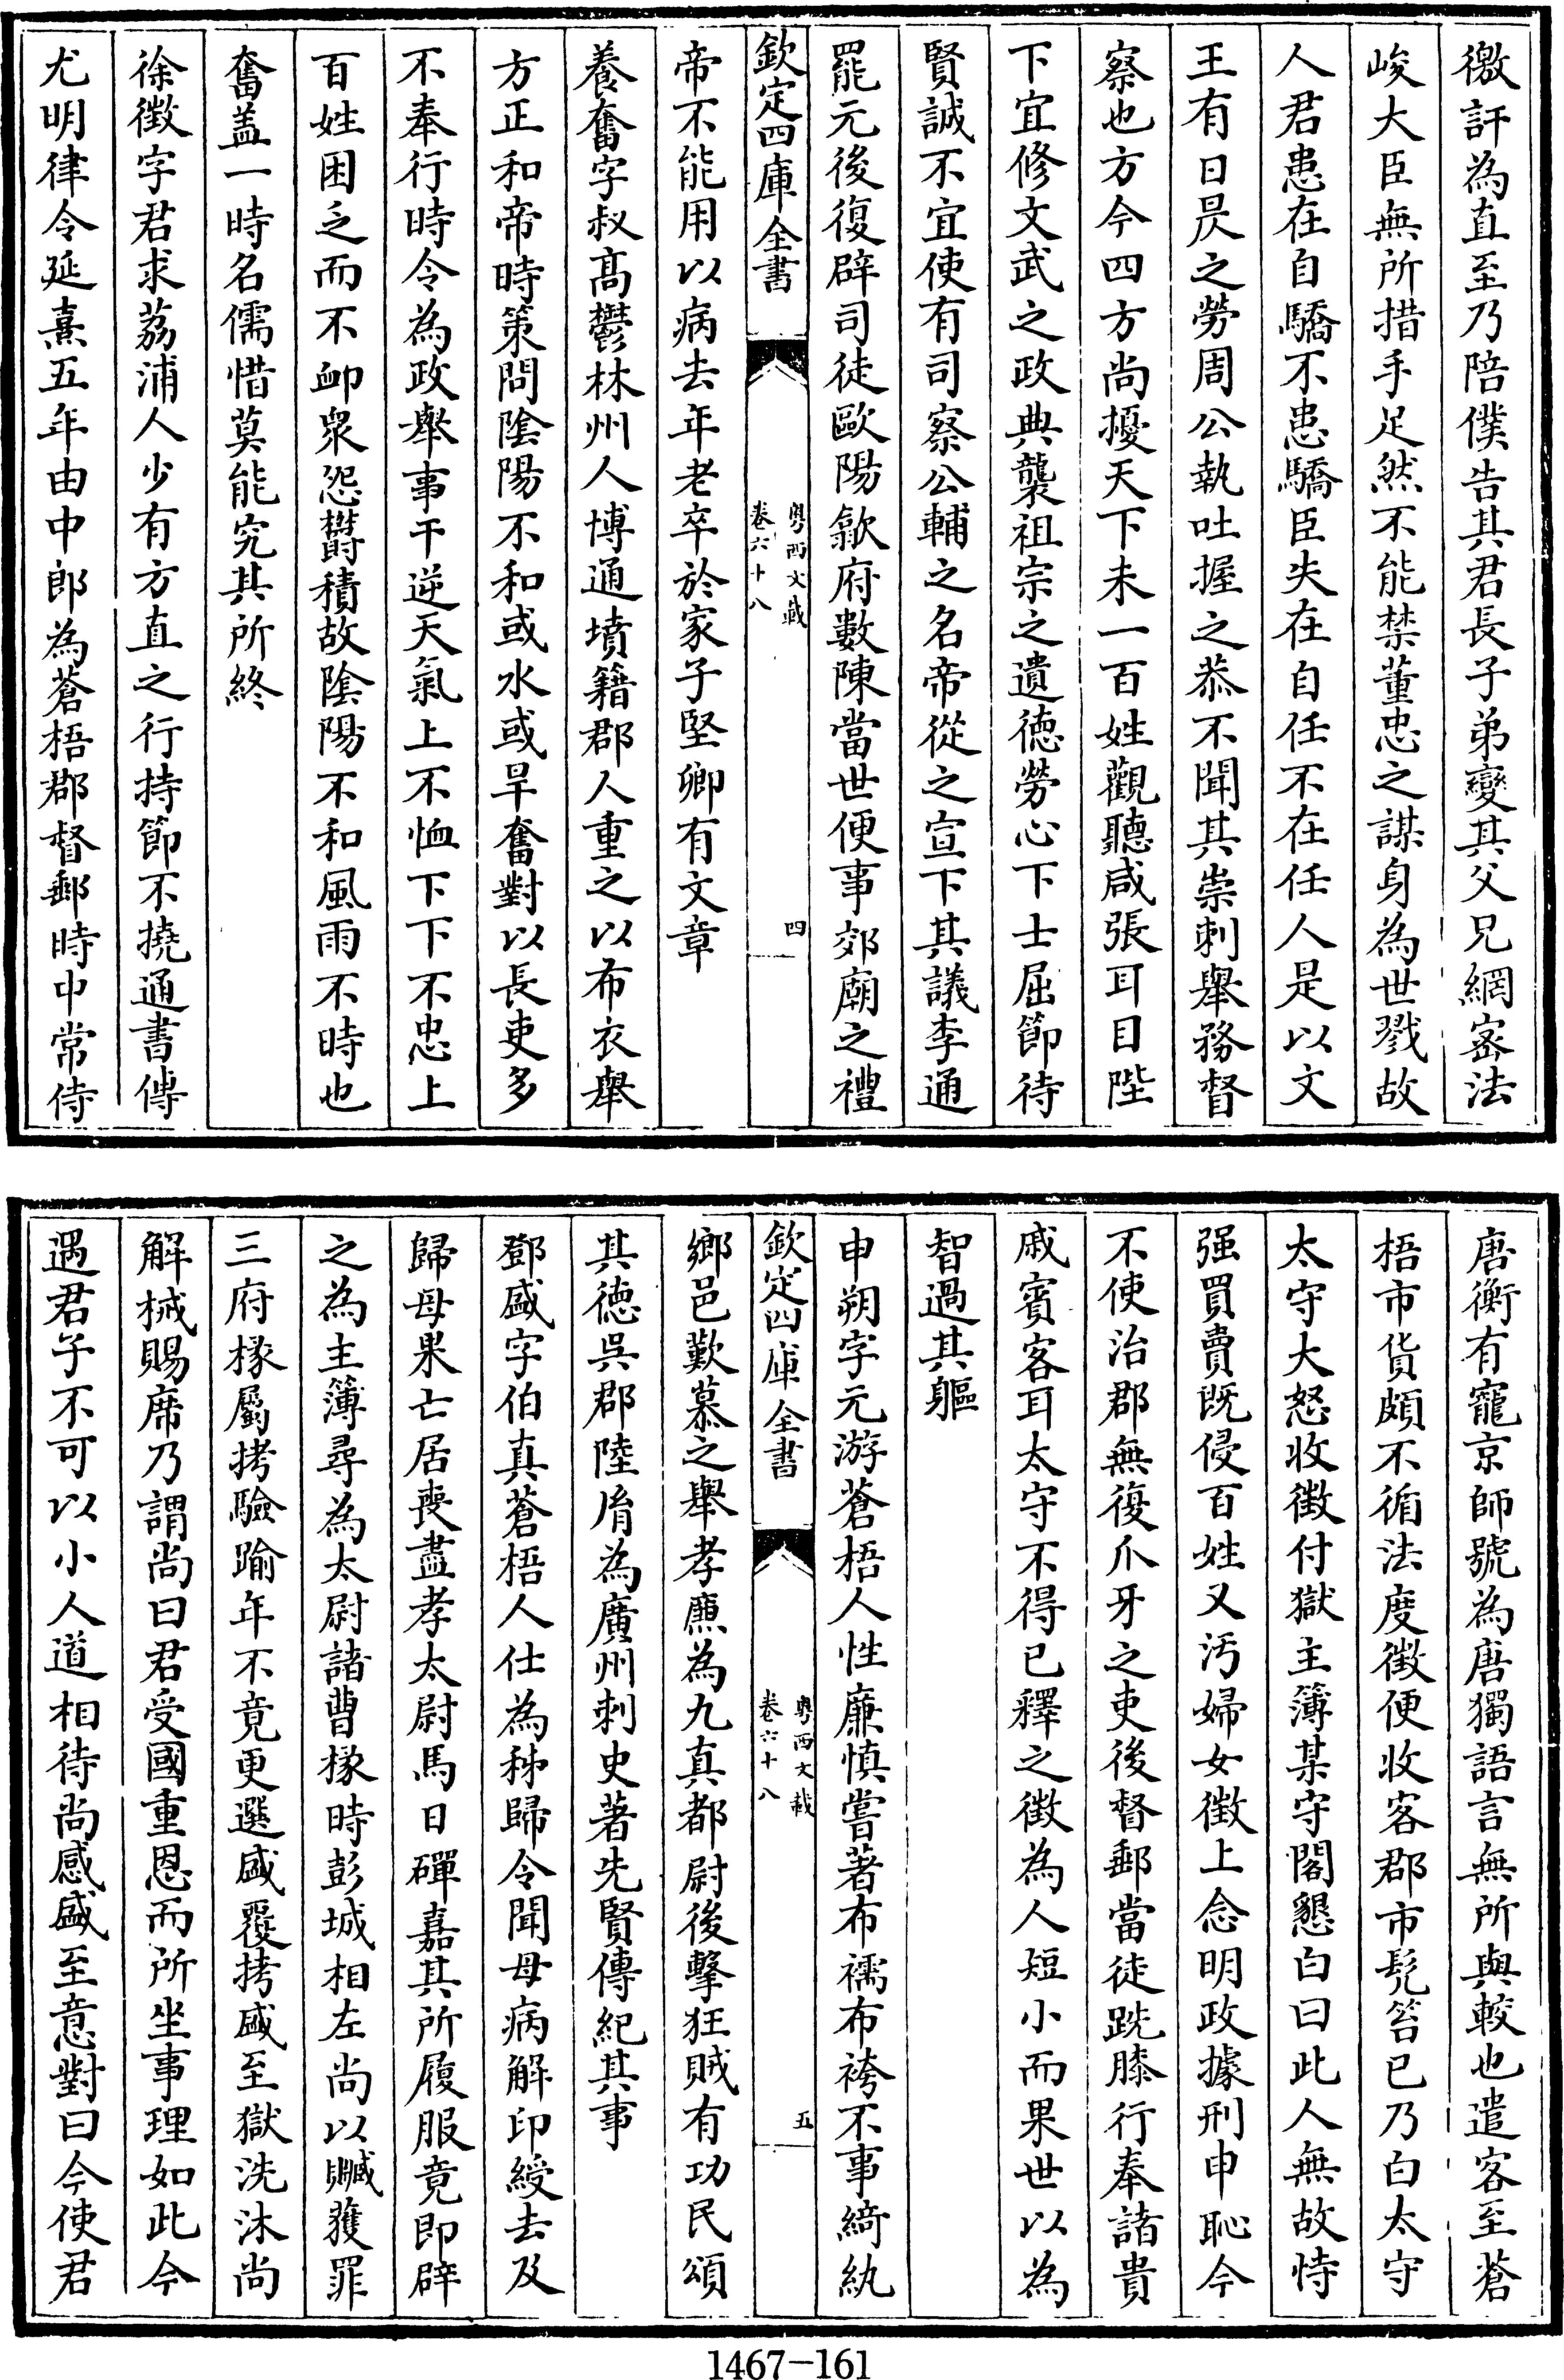 徼訐為直至乃陪僕告其君長子弟變其父兄網宻法
峻大臣無所措手足然不能禁董忠之謀身為世戮故
人君患在自驕不患驕臣失在自任不在任人是以文
王有日昃之勞周公執吐握之恭不聞其崇刺舉務督
察也方今四方尚擾天下未一百姓觀聽咸張耳目陛
下宜修文武之政典襲祖宗之遺德勞心下士屈節待
賢誠不宜使有司察公輔之名帝從之宣下其議李通
罷元後復辟司徒歐陽歙府數陳當世便事郊廟之禮
欽定四庫全書
粵西文載
卷六十八
四
帝不能用以病去年老卒於家子堅卿有文章
養奮字叔高鬱林州人博通墳籍郡人重之以布衣舉
方正和帝時策問隂陽不和或水或旱奮對以長吏多
不奉行時令為政舉事干逆天氣上不恤下下不忠上
百姓困乏而不卹衆怨鬱積故隂陽不和風雨不時也
奮葢一時名儒惜莫能究其所終
徐徴字君求荔浦人少有方直之行持節不撓通書傳
尤明律令延熹五年由中郎為蒼梧郡督郵時中常侍
唐衡有寵京師號為唐獨語言無所與較也遣客至蒼
梧市貨頗不循法度徴便收客郡市髠笞已乃白太守
太守大怒收徴付獄主簿某守閣懇白曰此人無故恃
强買賣既侵百姓又汚婦女徴上念明政據刑申恥今
不使治郡無復爪牙之吏後督郵當徒跣膝行奉諸貴
戚賓客耳太守不得已釋之徴為人短小而果世以為
智過其軀
申朔字元游蒼梧人性廉慎嘗著布襦布袴不事綺紈
欽定四庫全書
粵西文載
卷六十八
五
鄉邑歎慕之舉孝廉為九真都尉後擊狂賊有功民頌
其德吳郡陸胤為廣州刺史著先賢傳紀其事
鄧盛字伯真蒼梧人仕為秭歸令聞母病解印綬去及
歸母果亡居喪盡孝太尉馬日磾嘉其所履服竟即辟
之為主簿尋為太尉諸曹掾時彭城相左尚以贓獲罪
三府掾屬拷驗踰年不竟更選盛覆拷盛至獄洗沐尚
解械賜席乃謂尚曰君受國重恩而所坐事理如此今
遇君子不可以小人道相待尚感盛至意對曰今使君
1467-161